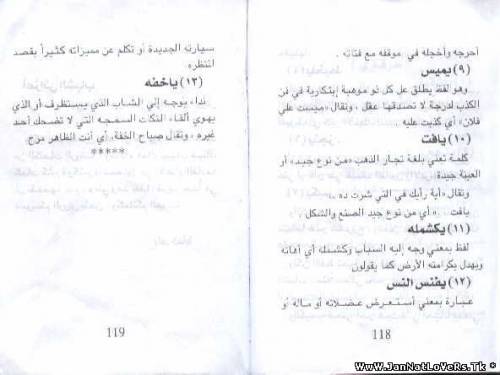 أحرجه وأخجله في موقفه مع فتاته .
(٩) يميس
وهو لفظ يطلق عل كل تو موهبة إبتكارية في فن
الكذب لدرجة لا تصدقها عقل ، ونقال «ميست علي
فلان» أي كذبت عليه
(١٠) يافت
كلمة تعني بلغة تجار الذهب «من نوع جيد» أو
العينة جيدة
ونقال «أية رأيك في التي شرت ده ..
يافت .. » أي من نوع جيد الصنع والشكل .
(١١) يكشمله
لفظ بمعني وجه إليه السباب وكشمله أي أهانه
وبهدل بكرامته الأرض كما يقولون
(١٢) يفنس النس
عبارة بمعني أستعرض عضلاته أو ماله أو
118
سيارته الجديدة أو تكلم عن مميزاته كثيراً بقصد
المنظره .
(١٣) ياخفه
نداء يوجه إلي الشاب الذي يستظرف أو الذي
يهوي ألقاء النكات السمجه التي لا تضحك أحد
غيره ، ونقال صباح الخفة، أي أنت الظاهر مزح.
*****
119
WwW.JanNatLoVeRs.Tk *